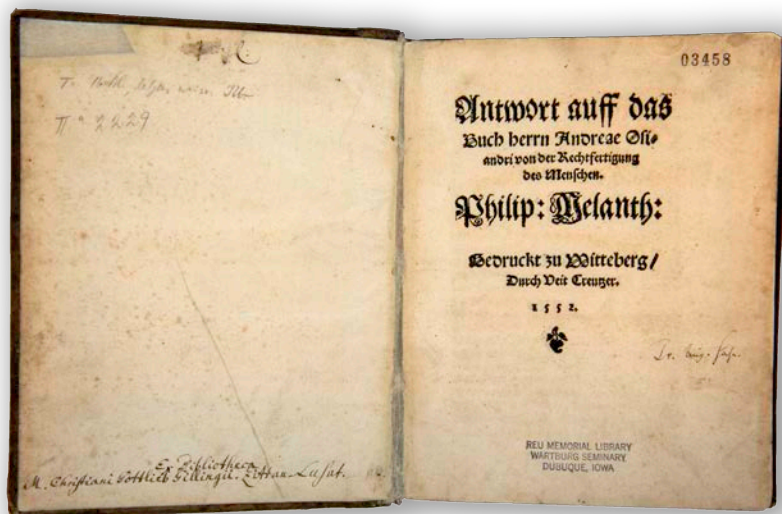 π a 2229
Ex Bibliotheca
M. Christiani Gottlieb Zittau-Lusat.
03458
Antwort auff das
Buch herrn Andreae Osi⸗
andri von der Rechtfertigung
des Menschen.
Philip: Melanth:
Gedruckt zu Witteberg /
Durch Veit Creutzer.
1552.
REU MEMORIAL LIBRARY
WARTBURG SEMINARY
DUBUQUE, IOWA